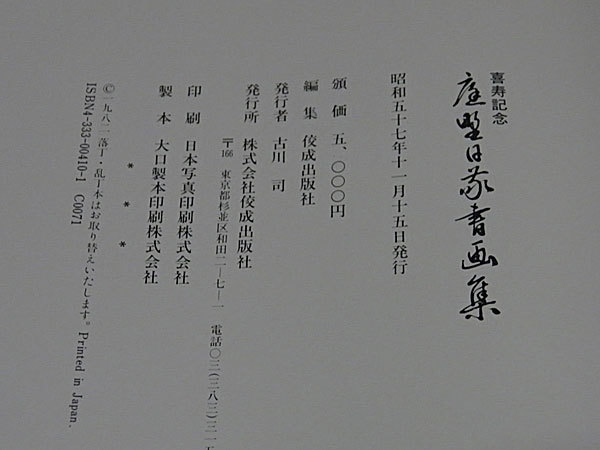 喜寿記念
庭野日敬書画集
昭和五十七年十一月十五日発行
頒価 五、〇〇〇円
編集 佼成出版社
発行者 古川 司
発行所 株式会社佼成出版社
〒166 東京都杉並区和田二—七—一
電話〇三(三八三)三一五
印刷 日本写真印刷株式会社
製本 大口製本印刷株式会社
* * *
©一九八二 落丁・乱丁本はお取り替えいたします。Printed in Japan.
ISBN4-333-00410-1 C0071